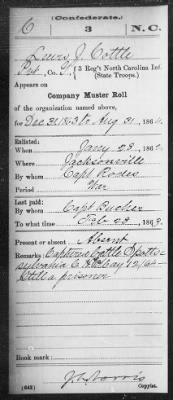 (Confederate.)
C 3 N. C.
Lewis J. Cottle
Pvt, Co. , 3 Reg't North Carolina Inf.
(State Troops.)
Appears on
Company Muster Roll
of the organization named above,
for Dec 31 1863 to Aug 31, 1864.
Enlisted:
When Jany 28, 186
Where Jacksonville
By whom Capt Rodes
Period War
Last paid:
By whom Capt
To what time Feb 28, 186
Present or absent Absent
Remarks: Captured battle Spott-
sylvania C. H. May 12/64
Still a prisoner
Book mark:
(642) Copyist.